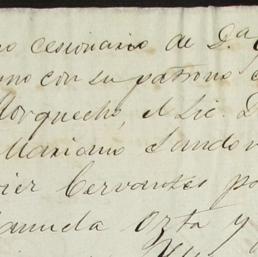 no cesionario de D.ª
uno con su patrono
Morquecho, el Lic. D
Mariano Sandov
vier Cervantes po
anuela Orta y